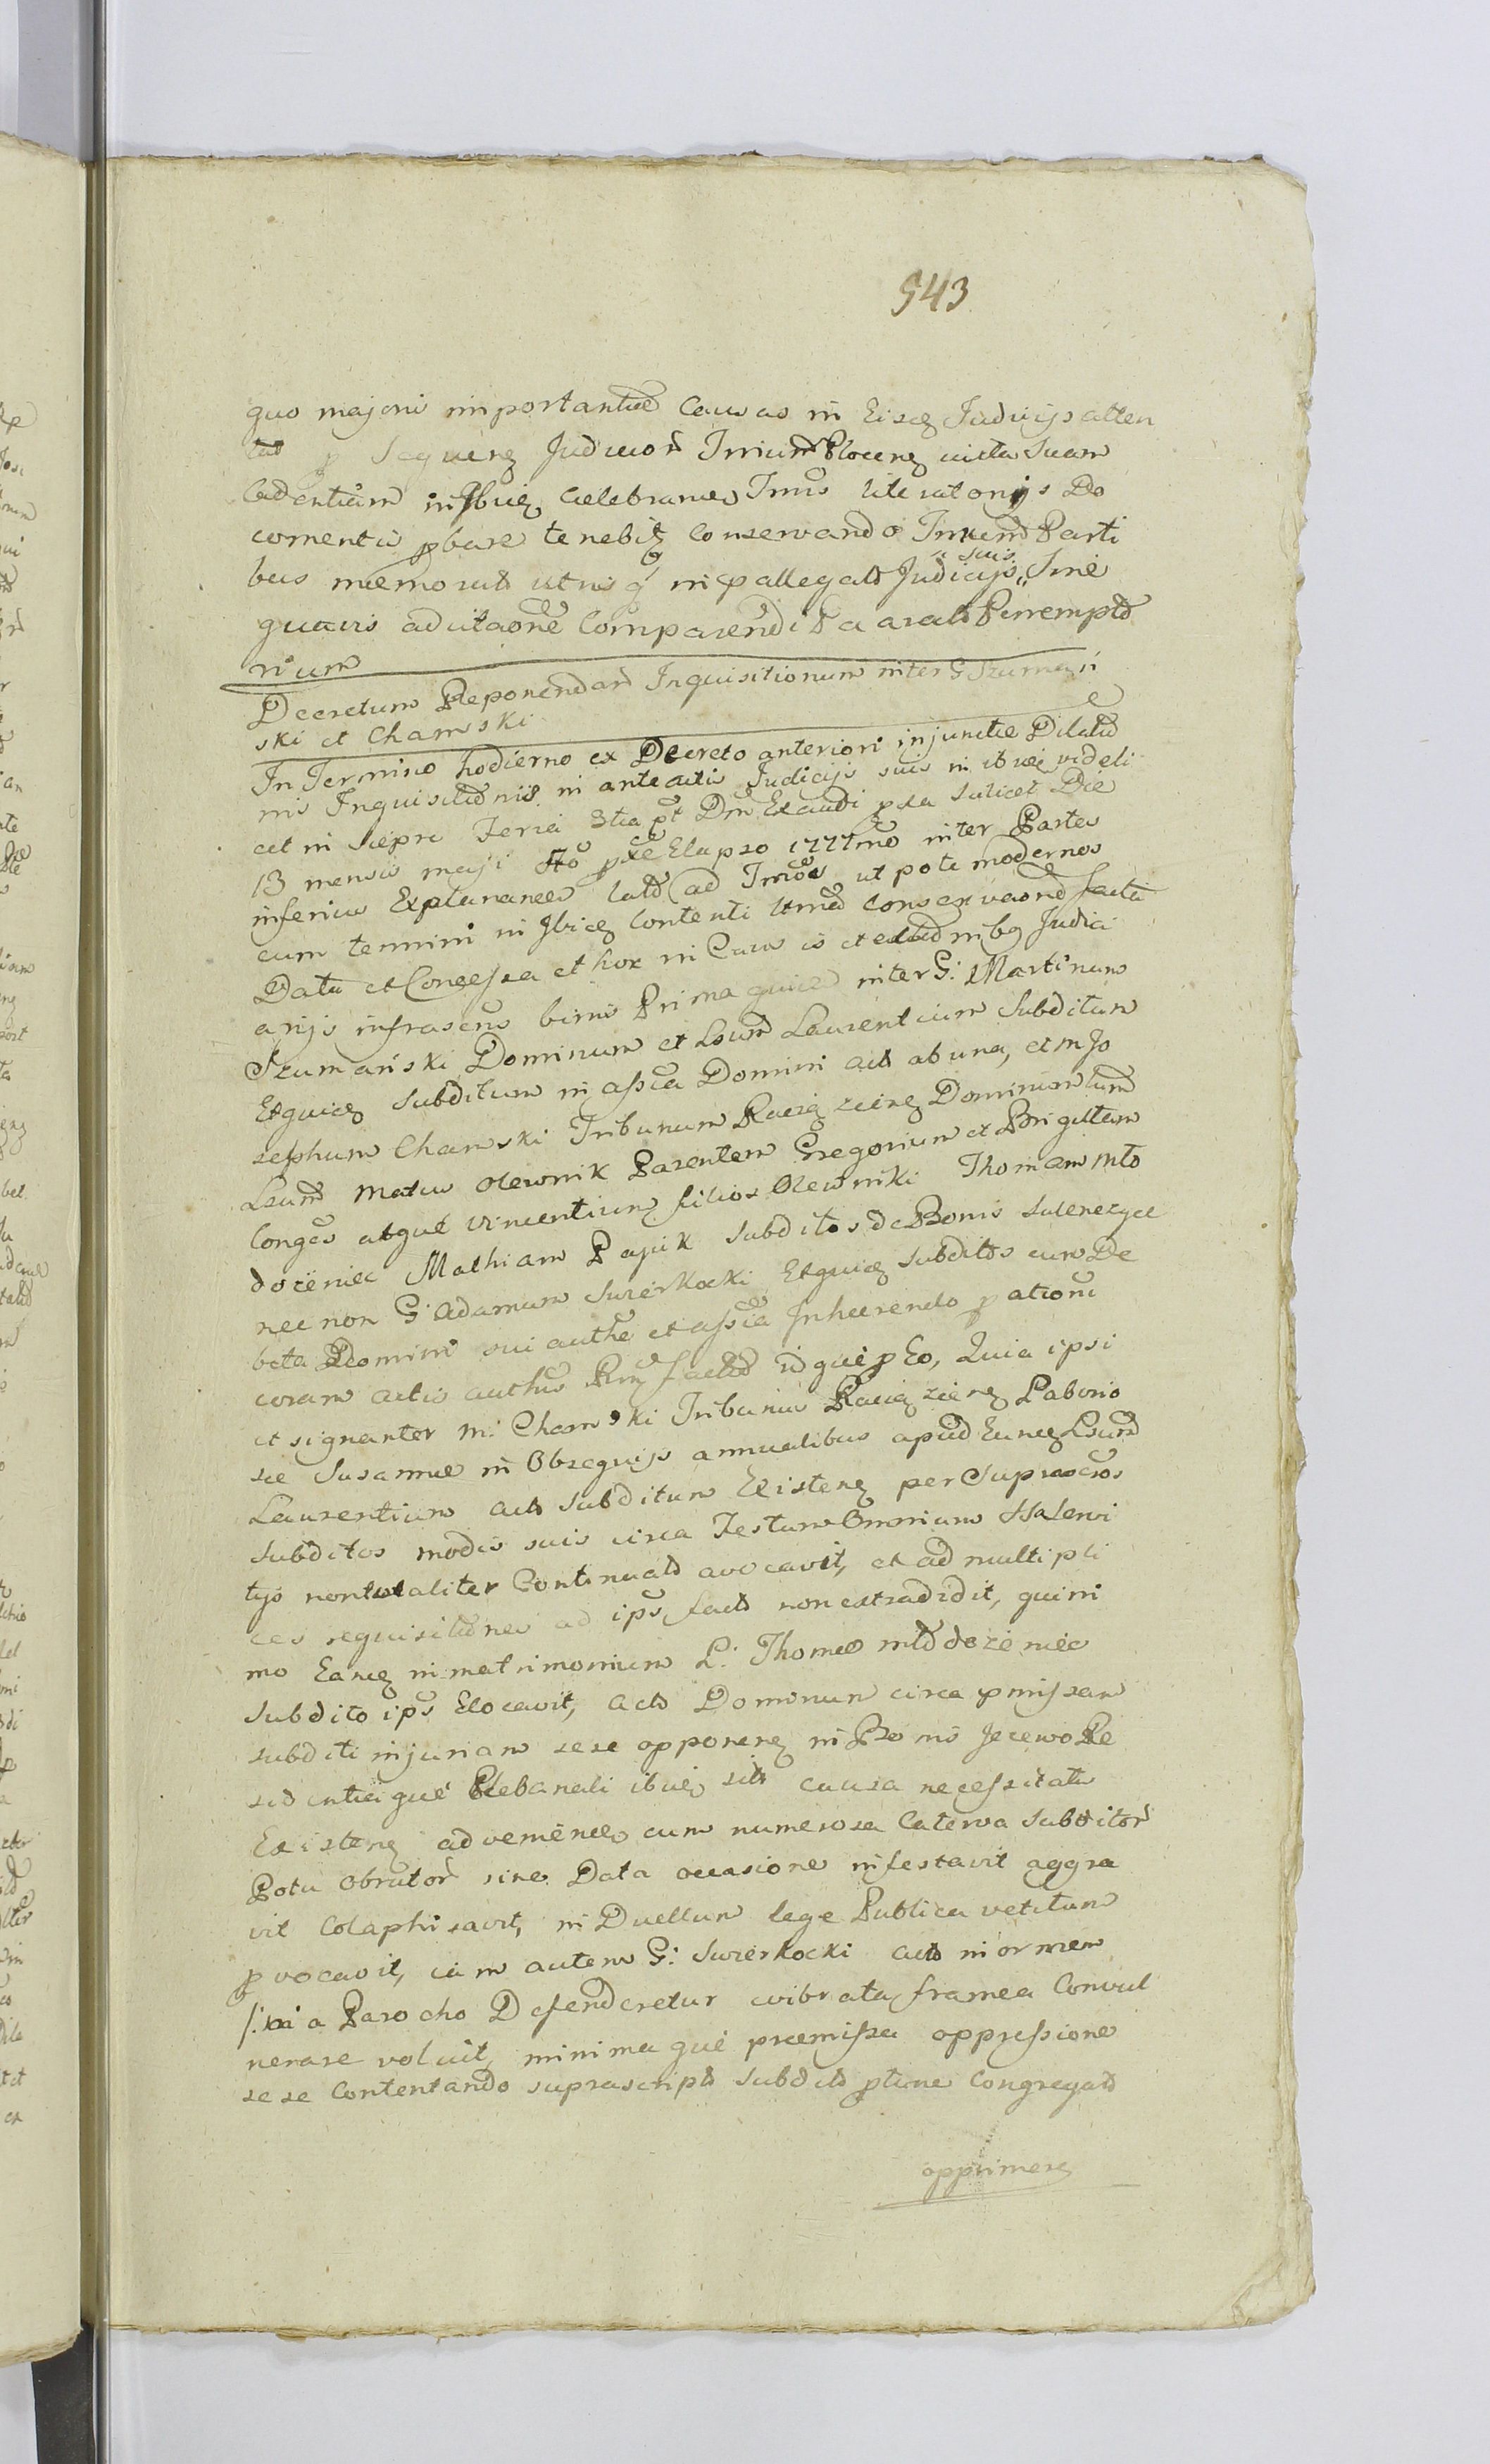 543
quo majoris importantiae Causas in Eisdq Judicijs atten
tas p Sequenq Judicior Trrium Plocenq juxta Suam
Cadentiam in Ibideq Celebrandes literatorijs Do
cumentis pbare tenebitq conservando Parti
bus memoratis utrisq in pallegatis Judicijs suis Sine
quavis aditaone Comparendi Peremptō
rium
Decretum Reponendar Inquisitionum inter G Szumań
ski et Chamski
In Termino hodierno ex Decreto anteriori injunctae Dilatio
nis Inquisitionis in anteactis Judicijs suis in ibidē videli
cet in Sieprc Feria 3tia pt Dm Exaudi pxa Scilicet Die
13 mensis maji Ao pxe Elapso 1777mo inter Partes
inferius Explanandas Lato ad ut pote modernos
cum termini in Ibideq Contenti conservaone facta
Data et Concessa et hoc in Causis et actionibq Judici
arijs infrascris binis Prima quidē inter G: Martinum
Szumański Dominum et Lsum Laurentium Subditum
Ejusdeq Subditum in assia Domini act ab una, et m Jo
sephum Chamski Tribunum Raciązienq Dominum tum
Lsum Matw Olewnik Parentem Gregorium et Brigittam
Conges atque Vincentium filios Olewniki Thomam Mło
dozieniec Mathiam Papik Subditos de Bonis Sulenczyce
nec non G: Adamum Swierkocki Ejusdeq Subditos cum De
bita Domini sui authe et assia Inhaerendo pationi
coram actis authis factae idque p Eo, Quia ipsi
et signanter m: Chamski Tribunus Raciązienq Laborio
sae Susannae in Obsequijs annualibus apud Eundq Lsum
Laurentium acto Subditum Existenq per Suprascros
Subditos modis suis circa Festum Omnium
tys non totaliter Continuato avocavit, et ad multipli
ces requisitiones ad ips facto non extradidit, quini
mo Eandq in matrimonium L: Thomae młodozieniec
Subdito ips Elocavit, acto Dominum circa pmissam
subditi injuriam sese opponenq in Bonis Jezewo Re
sidentiaque Plebanali ibideq sitis causa necessitatis
Existenq advemendo cum numerosa Caterva Subditor
Potu obrutor sine Data occasione infestavit aggra
vit Colaphisavit, in Duellum lege Publica vetitum
pvocavit, cum autem G: Swierkocki acto
a Parocho Defenderetur vibrata framea Convul
nerare voluit, minimaque praemissa oppressione
sese Contentando suprascriptis subditis ptune Congregatis
opprimere